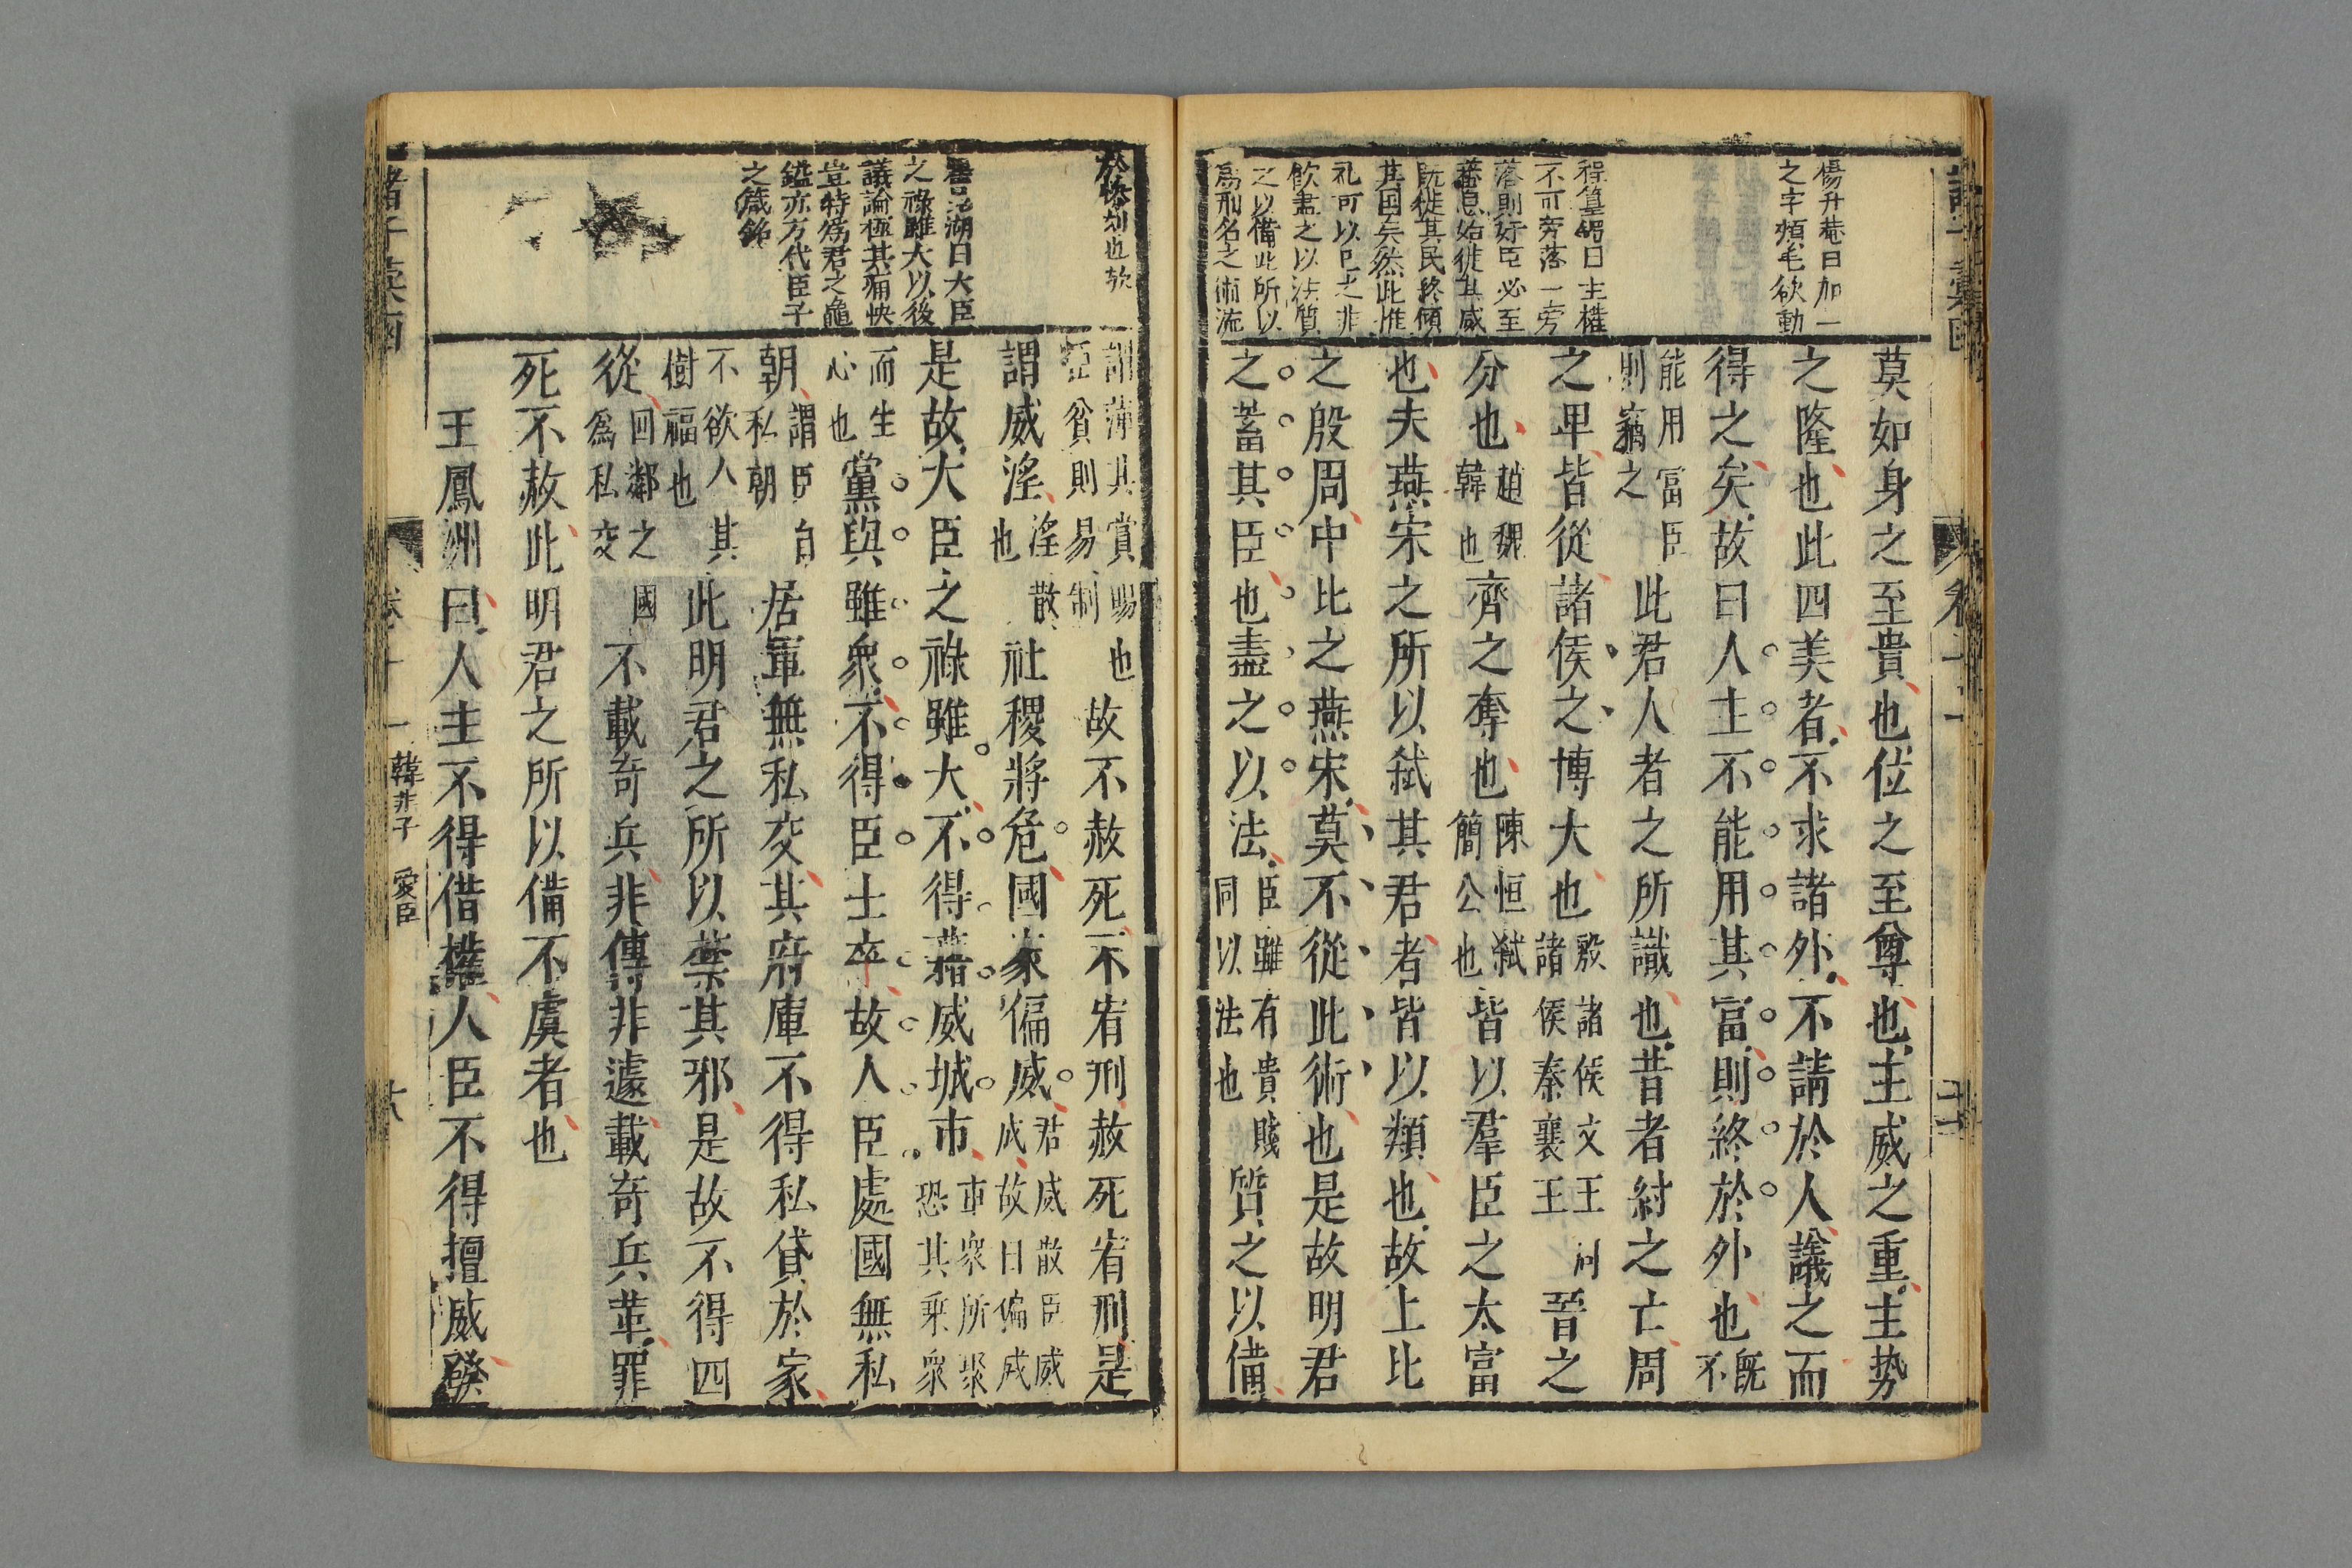 楊升菴曰加一
之字頰毛欲動
程篁墩曰主權
不可旁落一旁
落則奸臣必至
蕃息始徙其威
既徙其民終傾
其国矣然此惟
礼可以已之非
飲盡之以法質
之以備此所以
為刑名之術流
莫如身之至貴也位之至尊也主威之重主势
之隆也此四美者不求諸外不請於人議之而
得之矣故曰人主不能用其富則終於外也既不
能用富臣則竊之此君人者之所識也昔者紂之亡周
之卑皆從諸侯之博大也殷諸侯文王周諸侯秦襄王晉之
分也趙魏韓也齊之奪也陳恒弑簡公也皆以羣臣之太富
也夫燕宋之所以弑其君者皆以類也故上比
之殷周中比之燕宋莫不從此術也是故明君
之蓄其臣也盡之以法臣雖有貴賤同以法也質之以備
刻也欤
曰大臣
之祿雖大以後
議論極其痛快
豈特為君之龜
鑑亦万代臣子
之箴銘
謂薄其賞賜也臣貧則易制故不赦死不宥刑赦死宥刑是
謂威淫淫散也社稷將危國家偏威君威散臣威成故曰偏威
是故大臣之祿雖大不得藉威城市市衆所聚恐其乘衆
而生心也黨與雖衆不得臣士卒故人臣處國無私
朝謂臣自私朝居軍無私交其府庫不得私貸於家
不欲人其樹福也此明君之所以禁其邪是故不得四
從回鄰之國為私交不載奇兵非傳非遽載奇兵革罪
死不赦此明君之所以備不虞者也
王鳳洲曰人主不得借權人臣不得擅威發
韓非子 愛臣